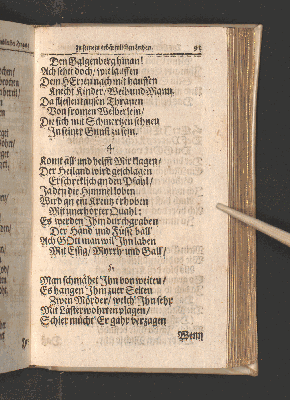 in seinem erbärmlichen Leyden. 91
Den Galgenberg hinan!
Ach seht doch, wie lauffen
Dem HErren nach mit hauffen
Knecht, Kinder, Weib und Mann,
Da fliessen tausen Thränen
Von frommen Weiberlein/
Die sich mit Schmertzen sehnen
In seiner Gunst zu sein.
4
Komt all und helfft Mir klagen/
Der Heiland wird geschlagen
Erschreklich an den Pfahl/
Ja den die Himmel loben
Wird an ein Kreutz erhoben
Mit unerhörter Quahl:
Es werden Ihm durchgraben
Der Händ und Füsse ball
Ach GOtt man wil Ihn laben
Mit Essig/ Myrrh und Gall/
5
Man schmähet Ihn von weiten/
Es hangen Ihm zuer Seiten
Zween Mörder/ welch' Ihn sehr
Mit Lästerwohrten plagen/
Schier mücht' Er gahr verzagen
Wenn